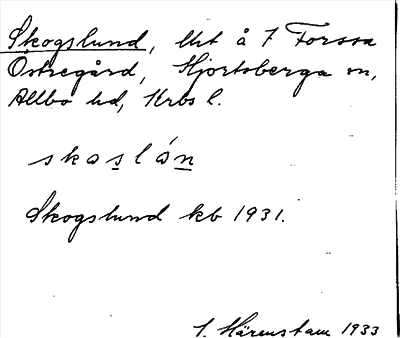 Skogslund, lht å 7 Forssa
Östregård, Hjortsberga sn,
Allbo hd, Krbs l.
skoslón
Skogslund kb 1931.
I. Härenstam 1933